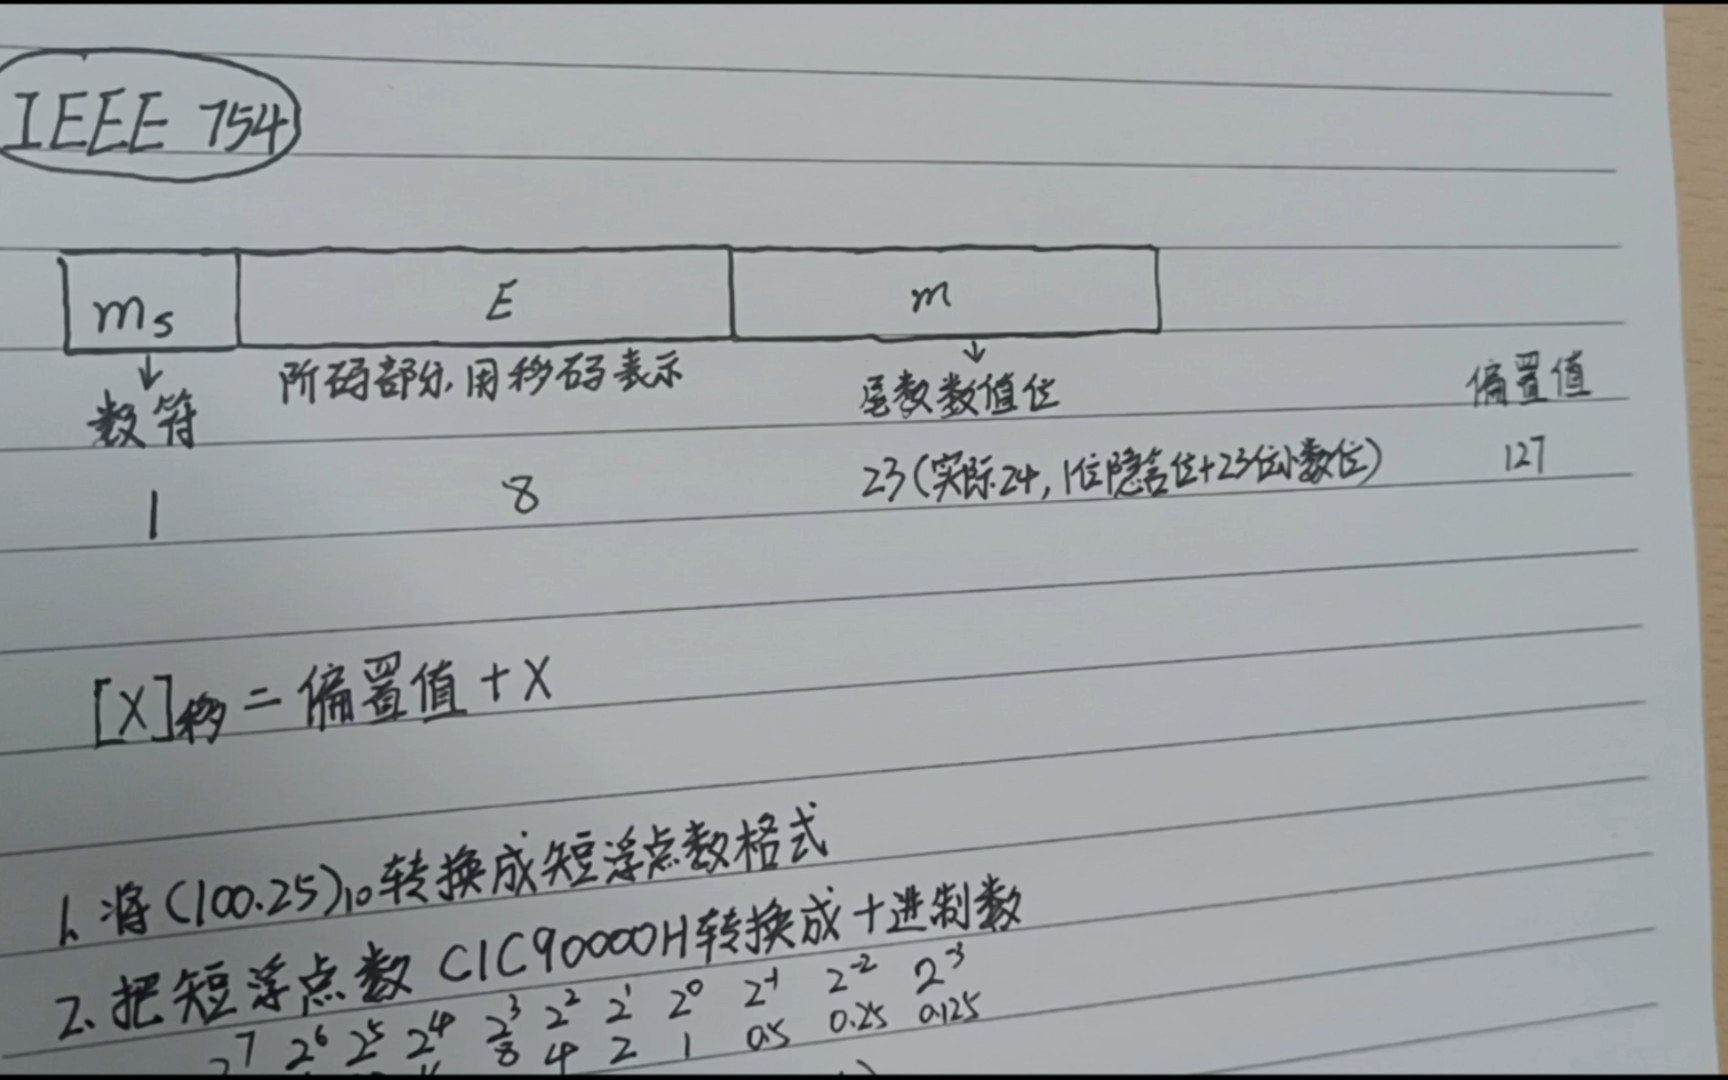 IEEE 754
ms E m
阶码部分,用移码表示
数符 尾数数值位 偏置值
1 8 23(实际24,1位隐含位+23位小数位) 127
[X]移=偏置值+X
1、将(100.25)10转换成短浮点数格式
2、把短浮点数C1C90000H转换成十进制数
2^7 2^6 2^5 2^4 2^3 2^2 2^1 2^0 2^-1 2^-2 2^-3
8 4 2 1 0.5 0.25 0.125